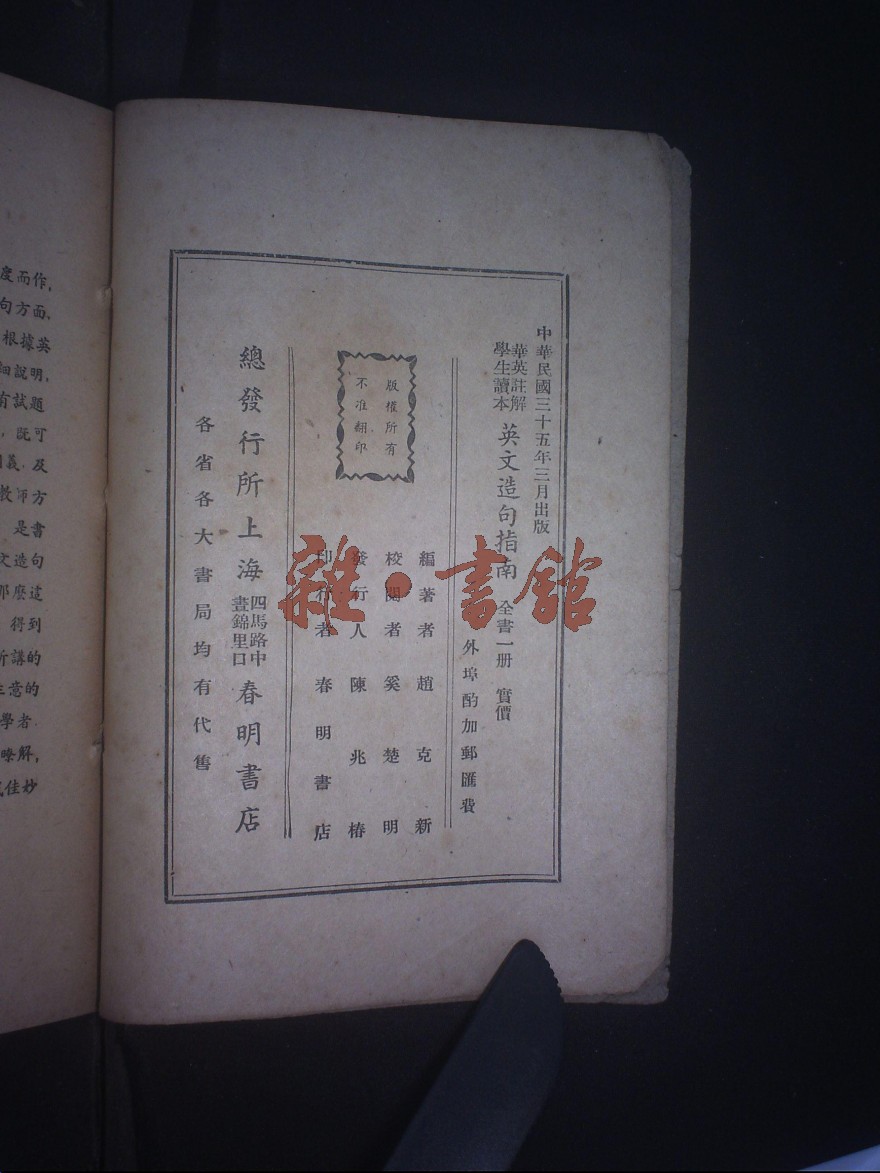 中華民國三十五年三月出版
華英註解
學生讀本
英文造句指南 全書一册 實價
外埠酌加郵匯費
版權所有
不准翻印
編著者 趙克新
校閱者 奚楚明
發行人 陳兆椿
印行者 春明書店
總發行所上海 四馬路中
晝錦里口
春明書店
各省各大書局均有代售
雜·書館
度而作,
句方面、
根據英
細說明,
有試題
,旣可
義,及
教師方
是書
文造句
那麼這
得到
所講的
注意的
學者.
瞭解,
佳妙